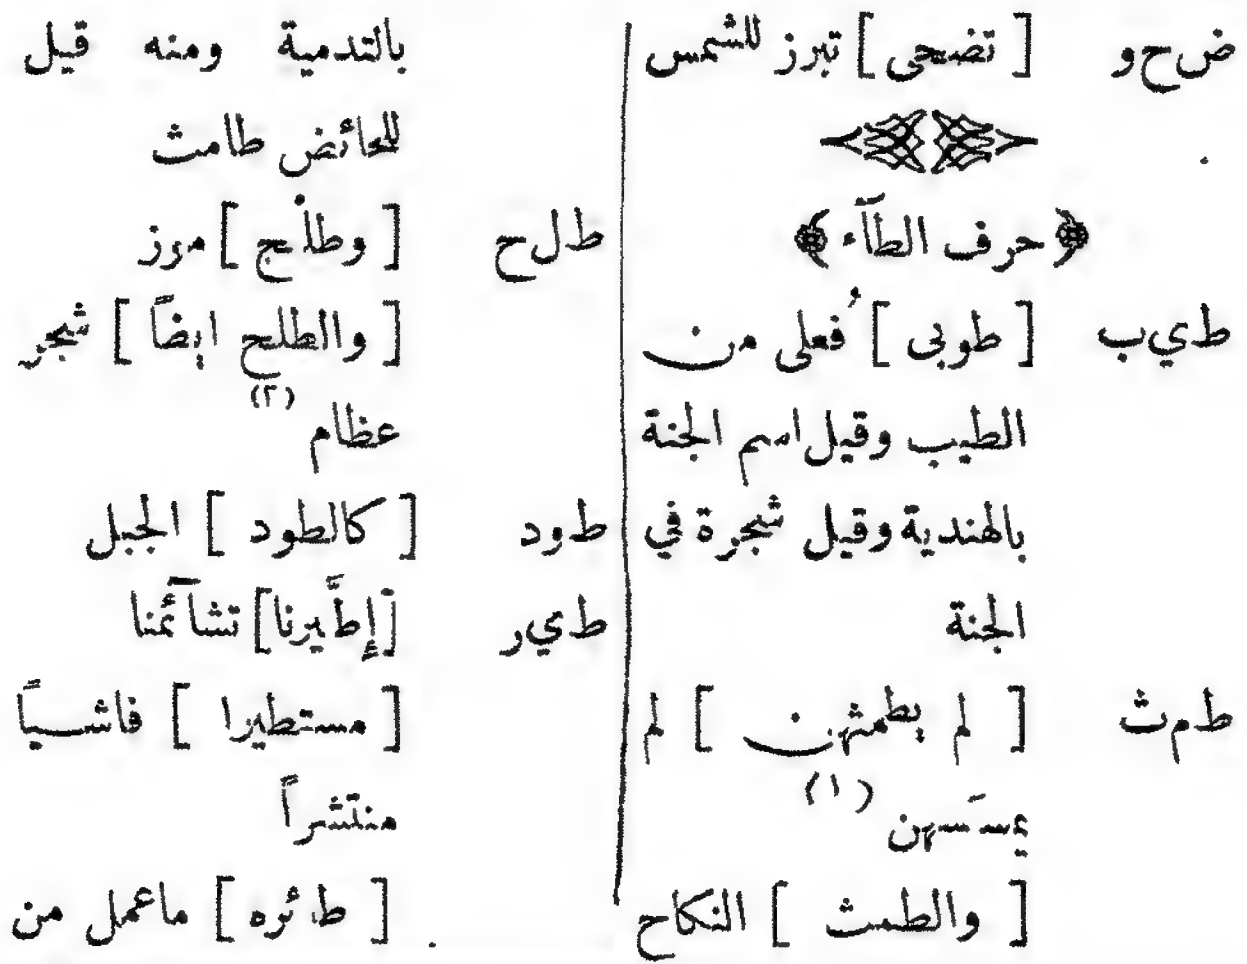 ض ح و [ تضحى ] تبرز للشمس
﴿ حرف الطآء ﴾
ط ي ب [ طوبى ] فُعلى من
الطيب وقيل اسم الجنة
بالهندية وقيل شجرة في
الجنة
ط م ث [ لم يطمثهن ] لم
يمسَسهن (١)
[ والطمث ] النكاح
بالتدمية ومنه قيل
للحائض طامث
ط ل ح [ وطلْح ] موز
[ والطلح ايضاً ] شجر
عظام (٢)
ط و د [ كالطود ] الجبل
ط ي ر [ إطَّيرنا ] تشآئمنا
[ مستطيرا ] فاشياً
منتشراً
[ طائره ] ماعمل من